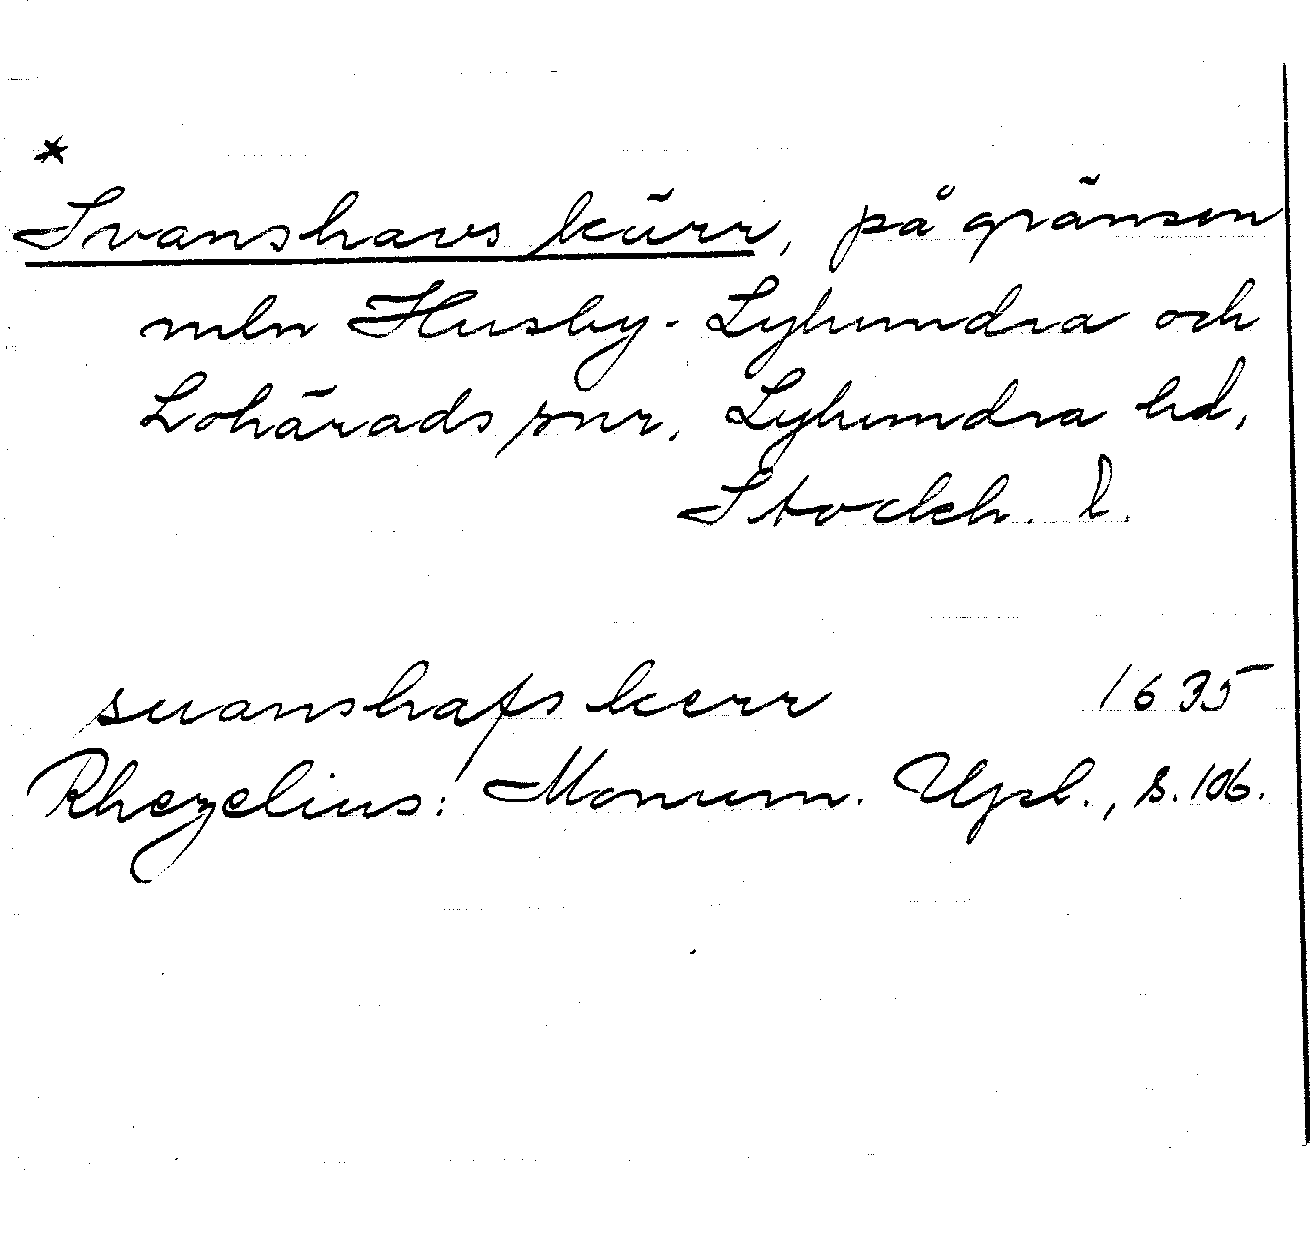 *
Svanshavs kärr, på gränsen
mln Husby-Lyhundra och
Lohärads snr, Lyhundra hd,
Stockh. l.
suanshafs kerr 1635
Rhezelius: Monum. Upl., s. 106.